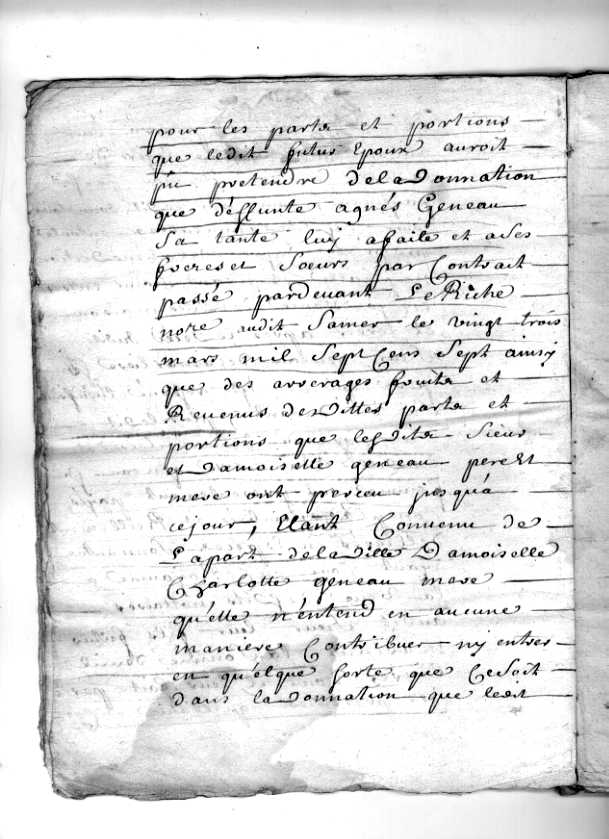 pour les parts et portions
que ledit futur Epoux auroit
pû pretendre dela Donnation
que déffunte agnés Geneau
sa tante luy afaite et ases
freres et soeurs par Contrait
passé pardevant Le Riche
nore audit Samer le vingt trois
mars mil Sept Cens Sept ainsy
que des arrerages fruits et
Revenus desdittes parts et
portions que lesdits Sieur
et Damoiselle geneau pere Et
mere ont perceu jusqu'à
cejour, Etant Convenu de
Lapart deladitte Damoiselle
Charlotte geneau mere
qu'elle n'entend en aucune
maniere Contribuer ny entrer
en quélque sorte que Cesoit
dans la Donnation que ledit